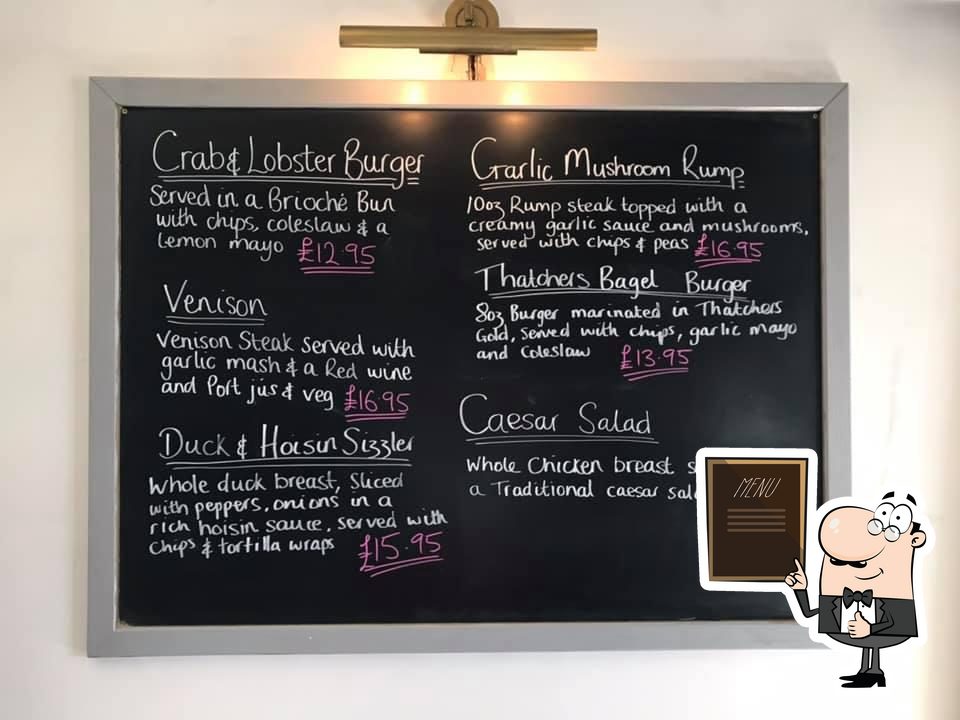 Crab & Lobster Burger
Served in a Brioché Bun
with chips, coleslaw & a
Lemon mayo £12.95
Venison
Venison Steak served with
garlic mash & a Red wine
and Port jus & veg £16.95
Duck & Hoisin Sizzler
Whole duck breast, Sliced
with peppers, onions in a
rich hoisin sauce, served with
chips & tortilla wraps £15.95
Garlic Mushroom Rump
10oz Rump steak topped with a
creamy garlic sauce and mushrooms,
served with chips & peas £16.95
Thatchers Bagel Burger
8oz Burger marinated in Thatchers
Gold, served with chips, garlic mayo
and Coleslaw £13.95
Caesar Salad
Whole Chicken breast
a Traditional caesar
MENU